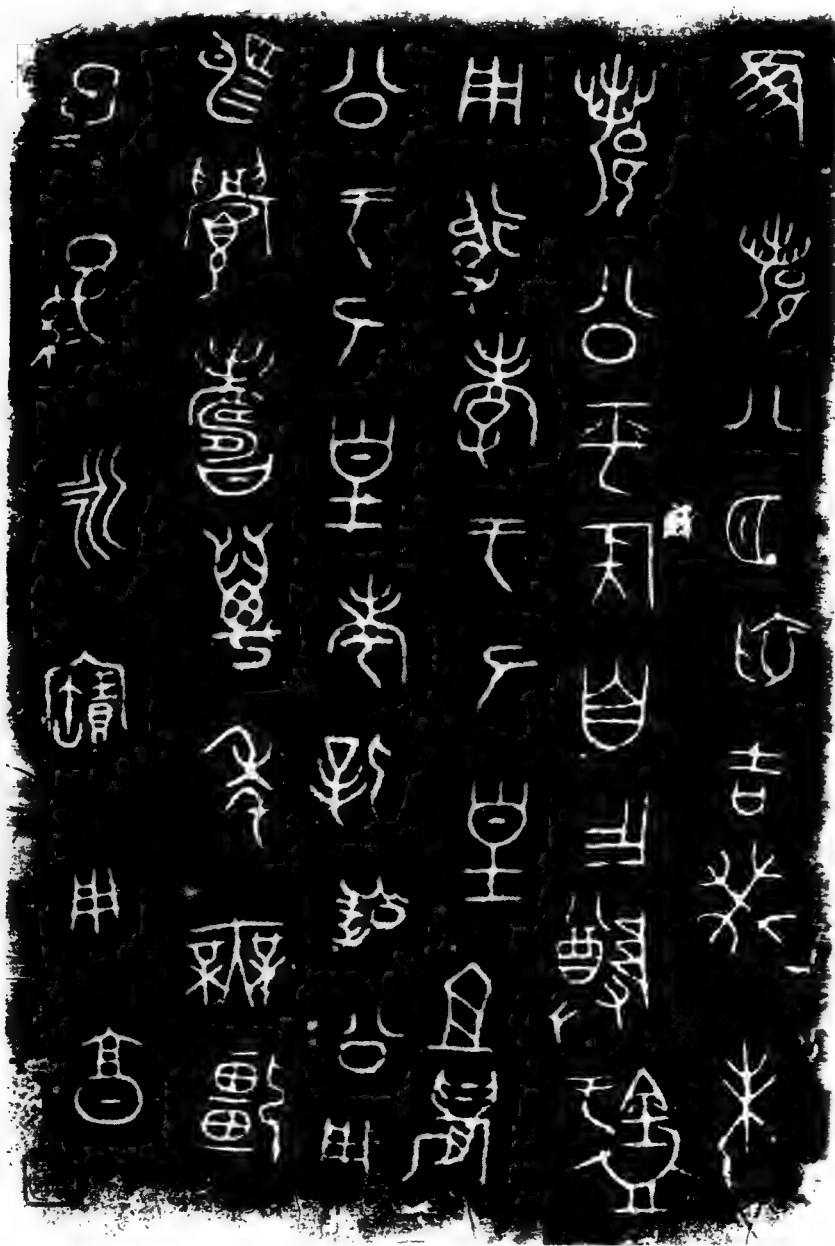 隹鄀八月初吉癸未
鄀公平侯自乍尊錳
用追孝于厥皇且晨
公于厥皇考屖公用
賜眉壽萬年無疆
子=孫=永寶用享